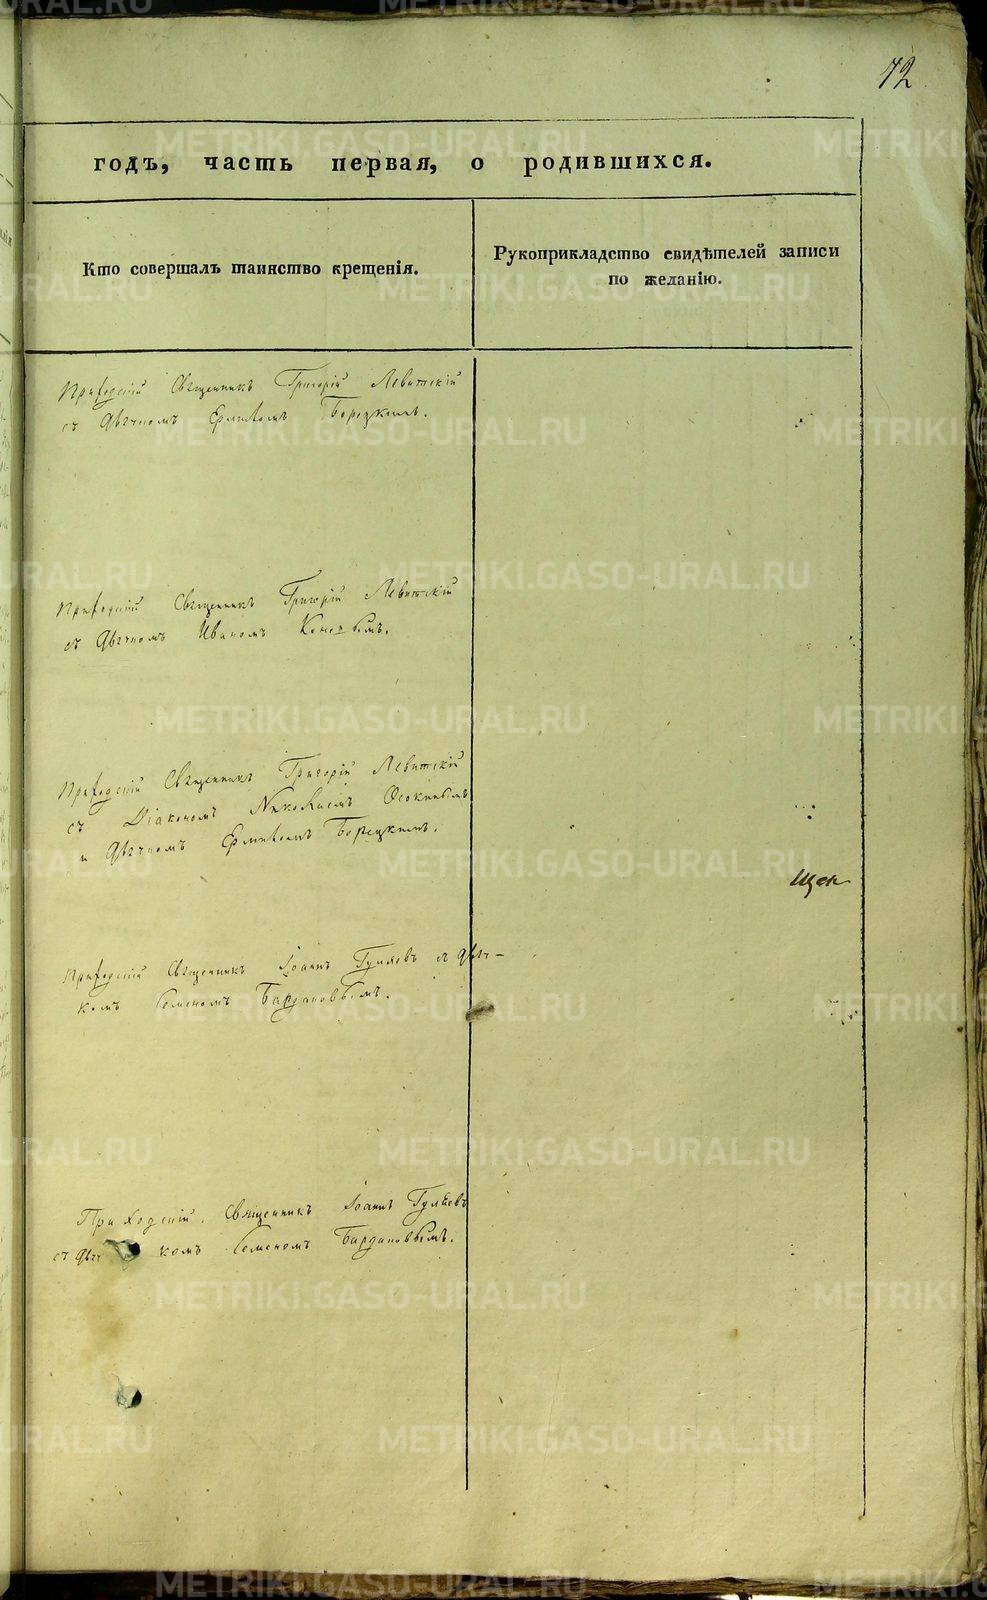 72
годъ, часть первая, о родившихся.
Кто совершалъ таинство крещенія.
Рукоприкладство свидѣтелей записи
по желанію.
Приходскій Священникъ Григорій Левитскій
съ Дьячкомъ Ермиломъ Борецкимъ.
Приходскій Священникъ Григорій Левитскій
съ Дьячкомъ Иваномъ
Приходскій Священникъ Григорій Левитскій
съ Діакономъ Николаемъ Осокинымъ
и Дьячкомъ Ермиломъ Борецкимъ.
Приходскій Священникъ Іоаннъ Гуляевъ съ Дьяч-
комъ Семеномъ Бардановымъ.
Приходскій Священникъ Іоаннъ Гуляевъ
съ Дьяч комъ Семеномъ Бардановымъ.
METRIKI.GASO-URAL.RU